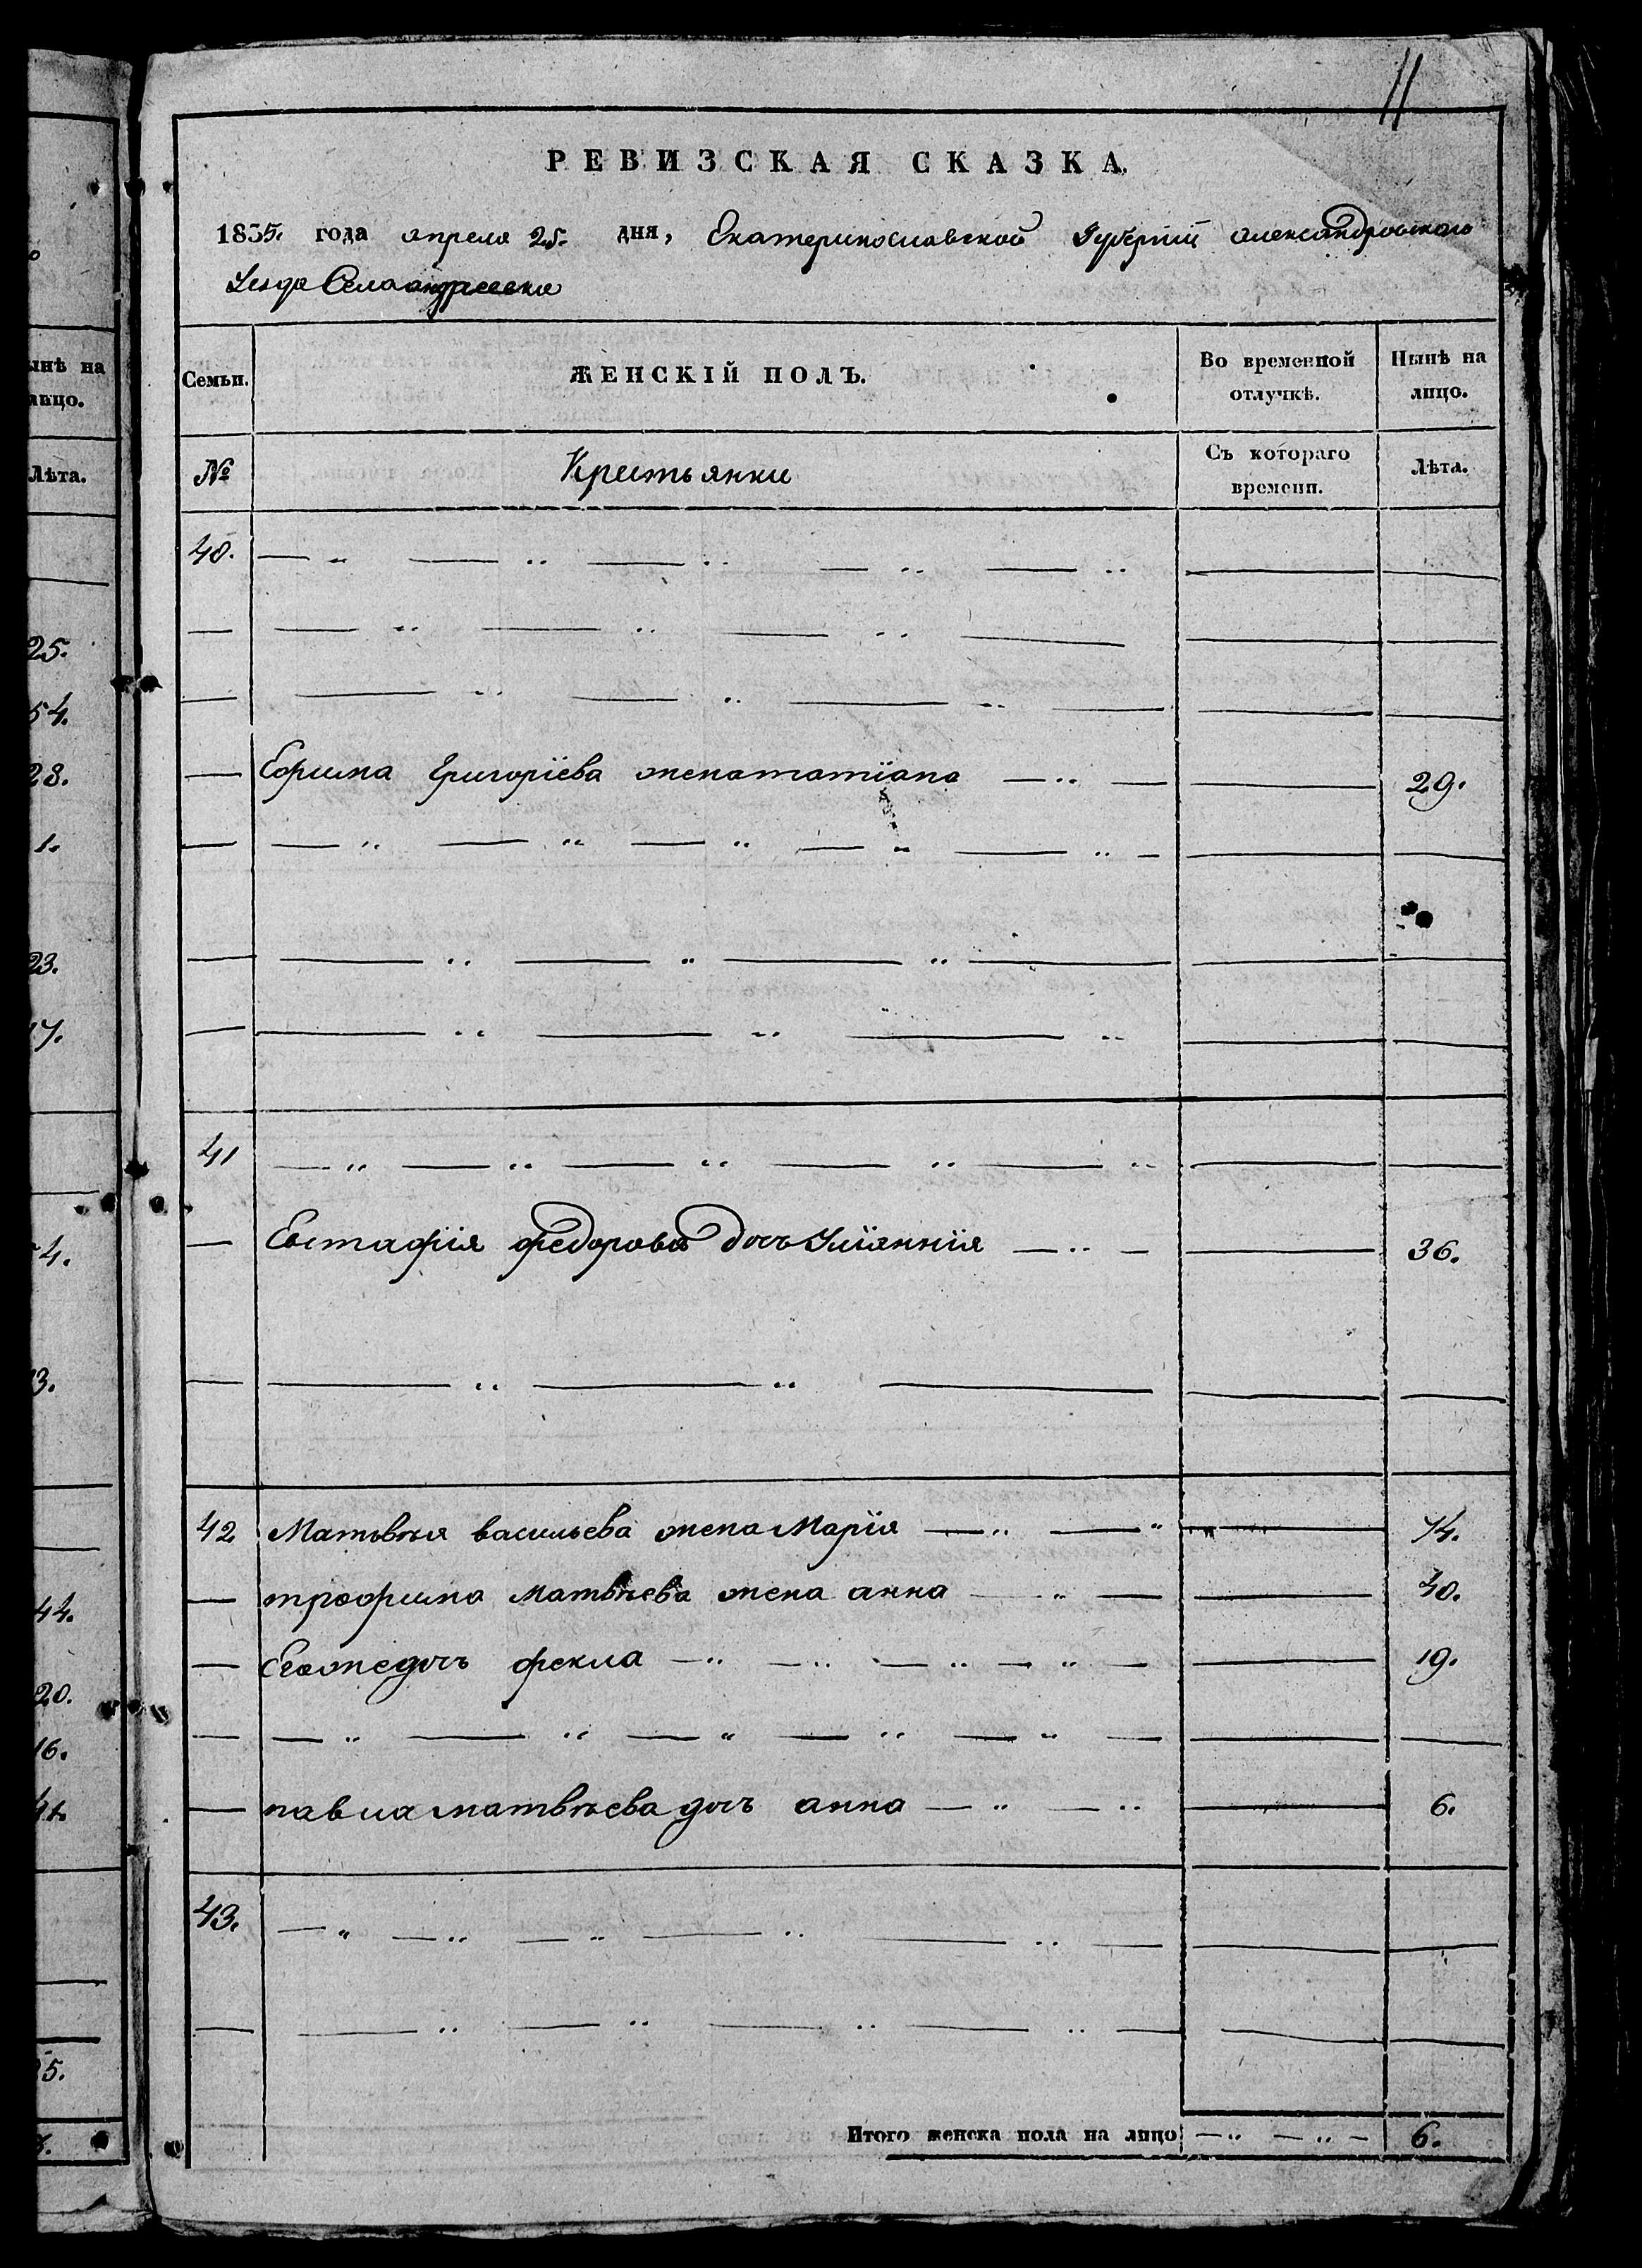 11
РЕВИЗСКАЯ СКАЗКА.
1835. года апреля 25. дня, Екатеринославской Губернии александровскаго
Уезда Села андреевки
Семьи. ЖЕНСКІЙ ПОЛЪ. Во временной отлучкѣ. Нынѣ на лицо.
№ Крестьянки Съ котораго времени. Лѣта.
40.
Ефрима Григоріева жена татіана 29.
41
Евстафія федорова дочь Уліаннія 36.
42 Матьвѣя васильева жена Марія 74.
трофима матвѣева жена анна 40.
Егоже дочь фекла 19.
павла матвѣева дочь анна 6.
43.
Итого женска пола на лицо 6.
ынѣ на
лицо.
Лѣта.
25.
54.
28.
1.
23.
17.
4.
3.
44.
20.
16.
5.